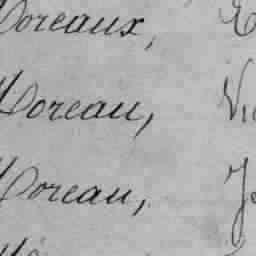 Doreaux, E
Doreau, Vi
Doreau, J